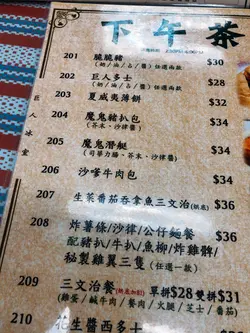 下午茶
201 脆脆豬 $30
(奶/油/占/醬)任選兩款
202 巨人多士 $28
(奶/油/占/醬)任選兩款
203 夏威夷薄餅 $32
204 魔鬼豬扒包 $34
(芥末·沙律醬)
205 魔鬼潛艇 $34
(司華力腸·芥末·沙律醬)
206 沙嗲牛肉包 $36
207 生菜番茄吞拿魚三文治(烘底) $35
208 炸薯條/沙律/公仔麵餐 $36
配豬扒/牛扒/魚柳/炸雞髀/
秘製雞翼三隻 (任選一款)
209 三文治餐(烘底加$3) 單拼$28 雙拼$31
(雞蛋/鹹牛肉/餐肉/火腿/芝士/番茄)
210 花生醬西多士
巨人冰室